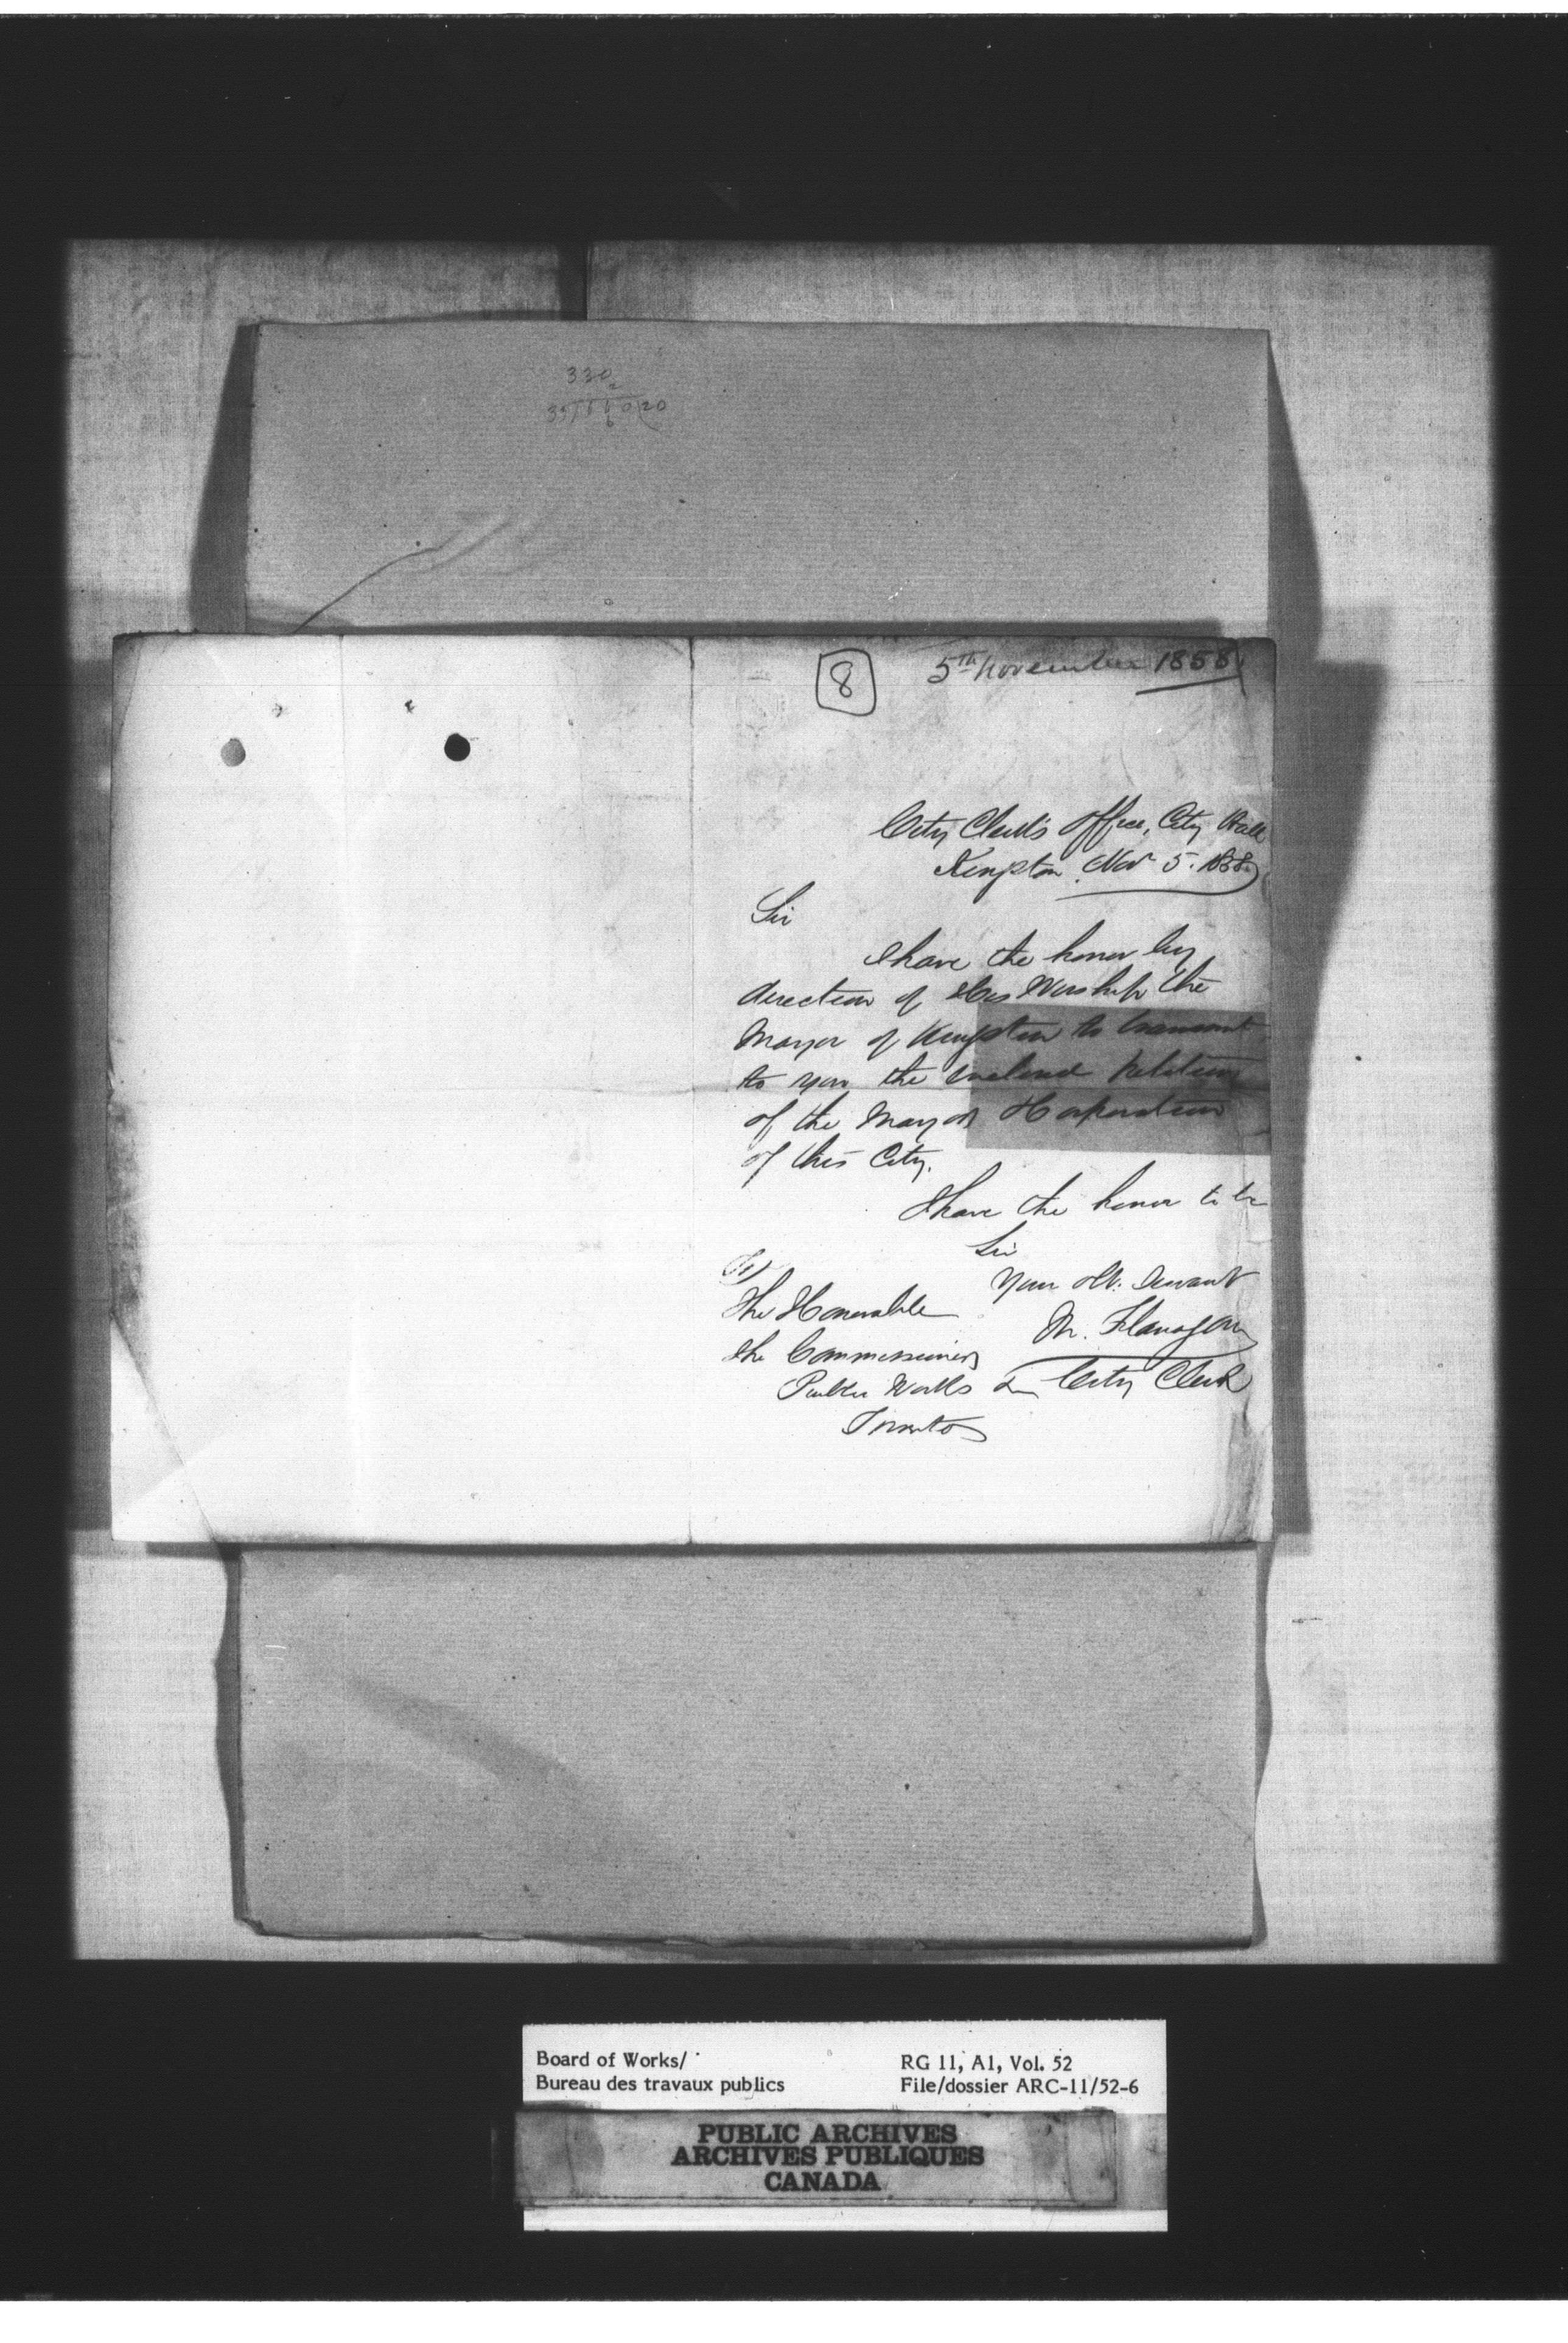 330
2
33)660(20
6
8
5th November 1858
City Clerk's Office, City Hall
Kingston Nov 5. 1858
Sir
I have the honor by
direction of His Worship the
Mayor of Kingston to transmit
to you the enclosed Petition
of the Mayor & Corporation
of this City.
I have the honor to be
Sir
Your Obt. Servant
M. Flanagan
City Clerk
To
The Honorable
the Commissioner
Public Works
Toronto
Board of Works/
Bureau des travaux publics
RG 11, A1, Vol. 52
File/dossier ARC-11/52-6
PUBLIC ARCHIVES
ARCHIVES PUBLIQUES
CANADA